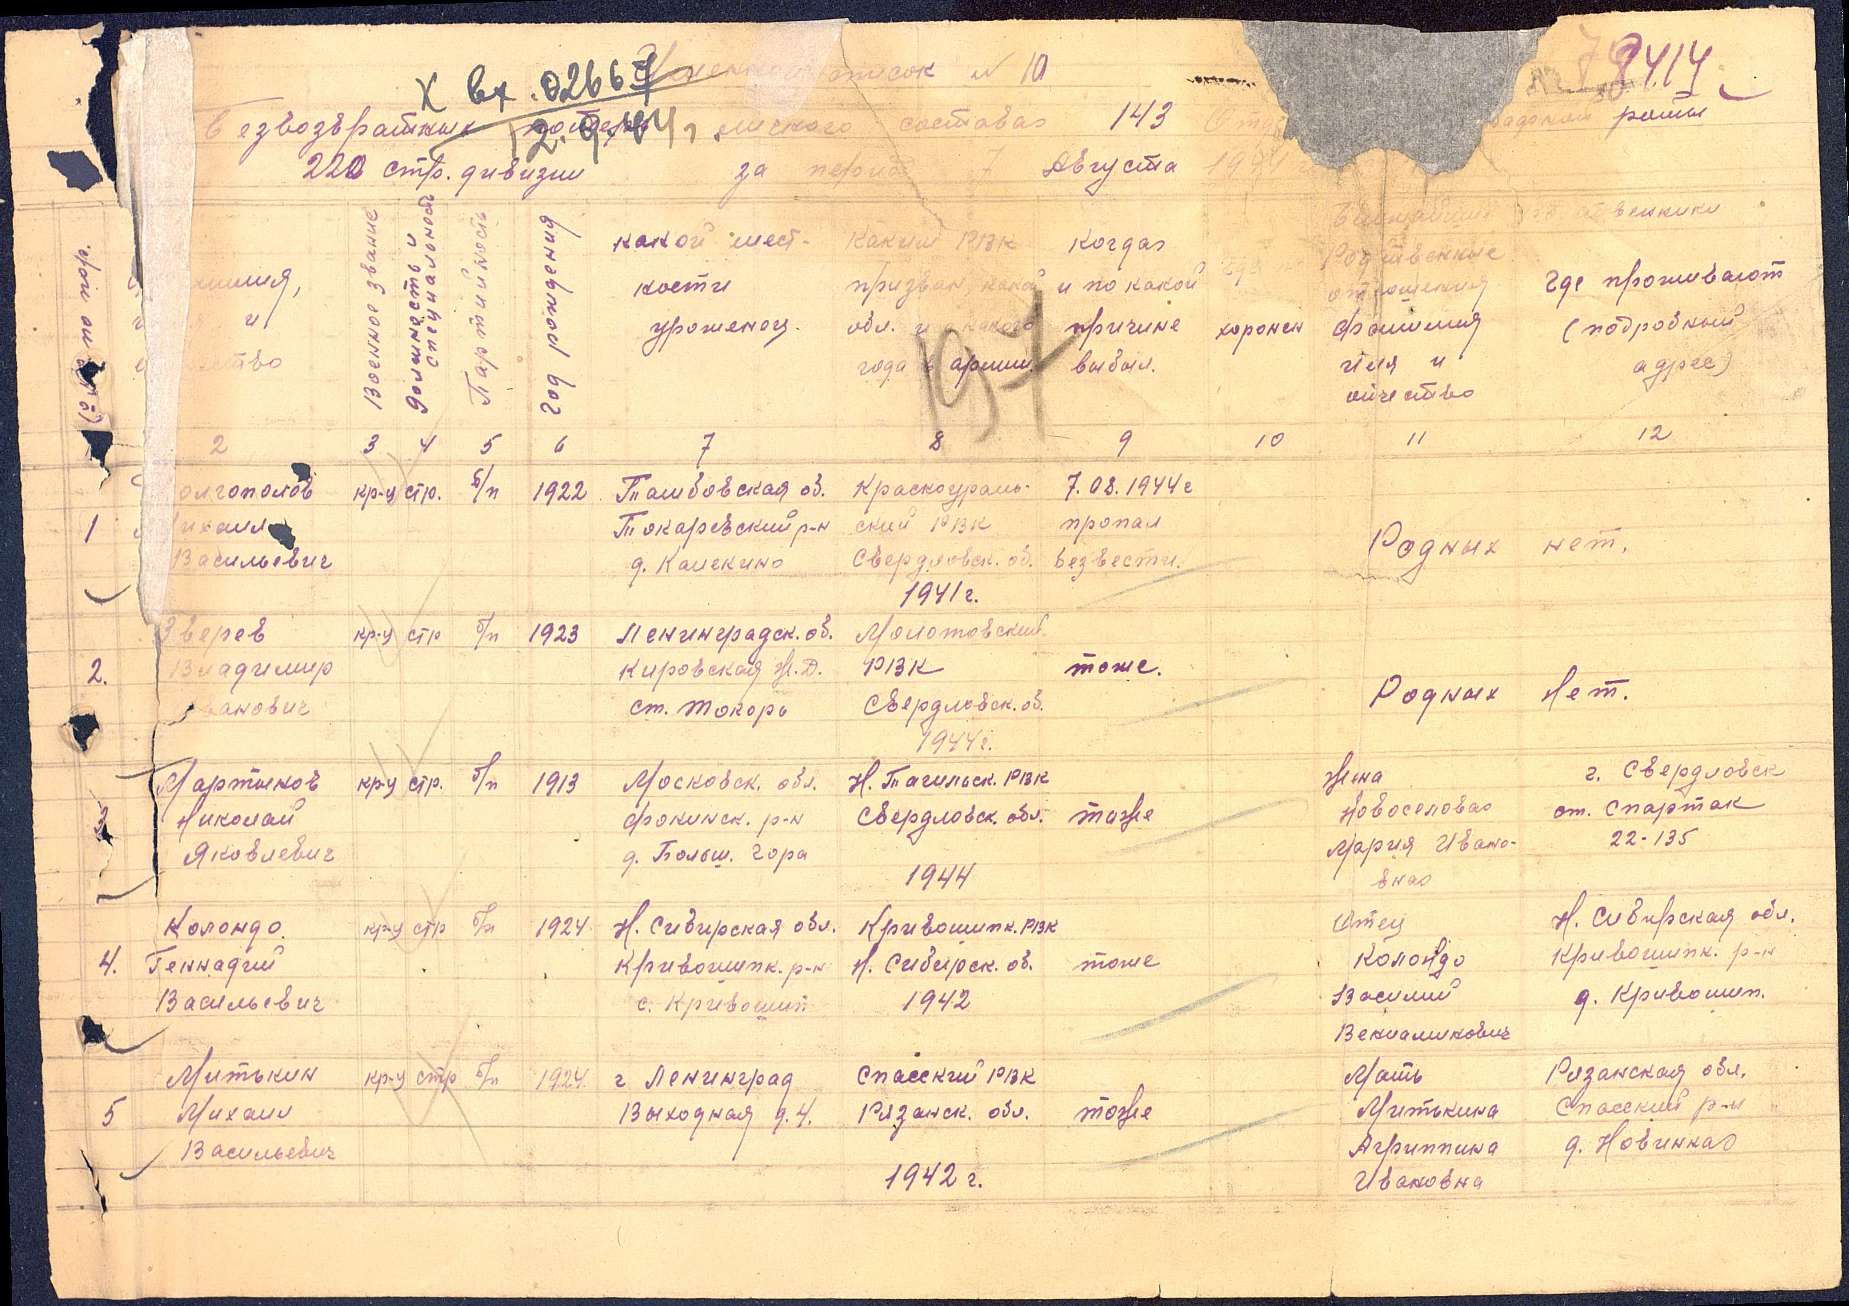 список № 10
7414
х вх. 02667
12.9.44г.
Безвозвратных потерь состава 143 роты
220 стр. дивизии за период 7 Августа
№ по пор.
милия,
и
ство
Военное звание
Должность и специальность
Партийность
Год рождения
какой мест-
ности
уроженец.
Каким РВК
призван, какой
обл. и какого
года в армии.
Когда
и по какой
причине
выбыл.
хоронен
венники
Родственные
отношения
Фамилия
Имя и
отчество
Где проживают
(подробный
адрес)
197
2 3 4 5 6 7 8 9 10 11 12
олгополов кр-ц стр. б/п 1922 Тамбовская об. Красноураль- 7.08.1944г
1 ихаил Токаревский р-н ский РВК пропал
Васильевич д. Канскино Свердловск. об. безвести. Родных нет.
1941г.
Зверев кр-ц стр б/п 1923 Ленинградск. об. Молотовский
2. Владимир Кировская Ж.Д. РВК тоже.
Иванович ст. Токорь Свердловск. об. Родных Нет.
1944г.
Мартынов кр-ц стр. б/п 1913 Московск. обл. Н. Тагильск. РВК Жена г. Свердловск
3 Николай Фокинск. р-н Свердловск. обл. тоже Новоселова ст. Спартак
Яковлевич д. Больш. Гора Мария Ивано- 22-135
1944 вна
Колондо. кр-ц стр б/п 1924 Н. Сибирская обл. Кривошипк. РВК Отец Н. Сибирская обл.
4. Геннадий Кривошипк. р-н Н. Сибирск. об. тоже Колондо Кривошипк. р-н
Васильевич с. Кривошип 1942 Василий д. Кривошип.
Вениаминович
Митькин кр-ц стр б/п 1924 г Ленинград Спасский РВК Мать Рязанская обл.
5 Михаил Выходная д. 4. Рязанск. обл. тоже Митькина Спасский р-н
Васильевич Агриппина д. Новинка
1942 г. Ивановна